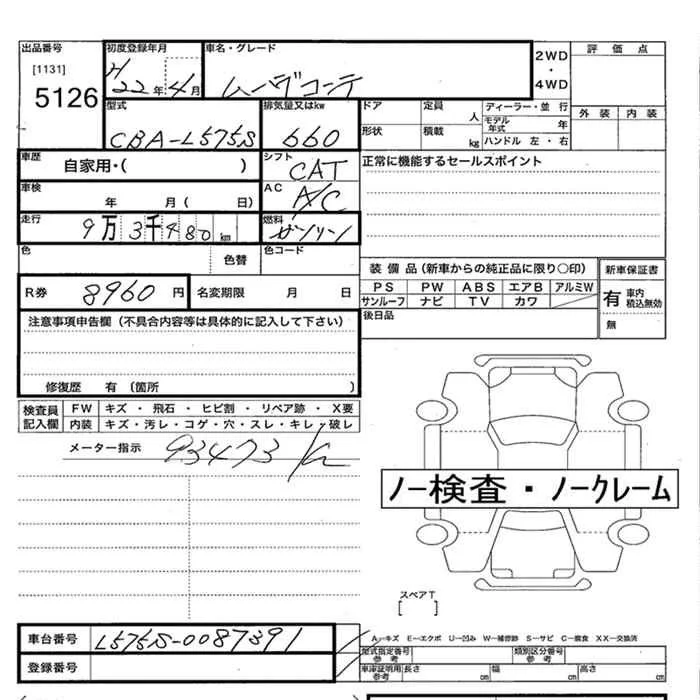 出品番号 初度登録年月 車名・グレード 2WD・4WD 評価点
[1131] 5126 H22年4月 ムーヴコンテ 外装 内装
型式 排気量又はkw ドア 定員 人 ディーラー・並行
CBA-L575S 660 形状 積載 kg モデル年式 年 ハンドル 左・右
車歴 自家用・( ) シフト CAT 正常に機能するセールスポイント
車検 年 月( 日) AC A/C
走行 9万3千480km 燃料 ガソリン
色 色替 色コード
装備品(新車からの純正品に限り○印) 新車保証書
R券 8960円 名変期限 月 日 PS PW ABS エアB アルミW 有 車内 積込無効
サンルーフ ナビ TV カワ
注意事項申告欄(不具合内容等は具体的に記入して下さい) 後日品 無
修復歴 有(箇所 )
検査員記入欄 FW キズ・飛石・ヒビ割・リペア跡・X要
内装 キズ・汚レ・コゲ・穴・スレ・キレ・破レ
メーター指示 93473km
ノー検査・ノークレーム
スペアT
[ ]
車台番号 L575S-0087391 A―キズ E―エクボ U―凹み W―補修跡 S―サビ C―腐食 XX―交換済
型式指定番号 参考 類別区分番号 参考
登録番号 車庫証明用 参考 長さ cm 幅 cm 高さ cm